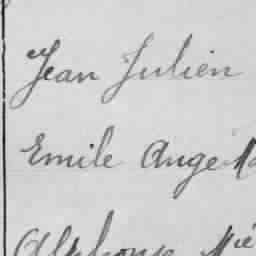 Jean Julien
Emile Ange Ma
Alphonse Mie